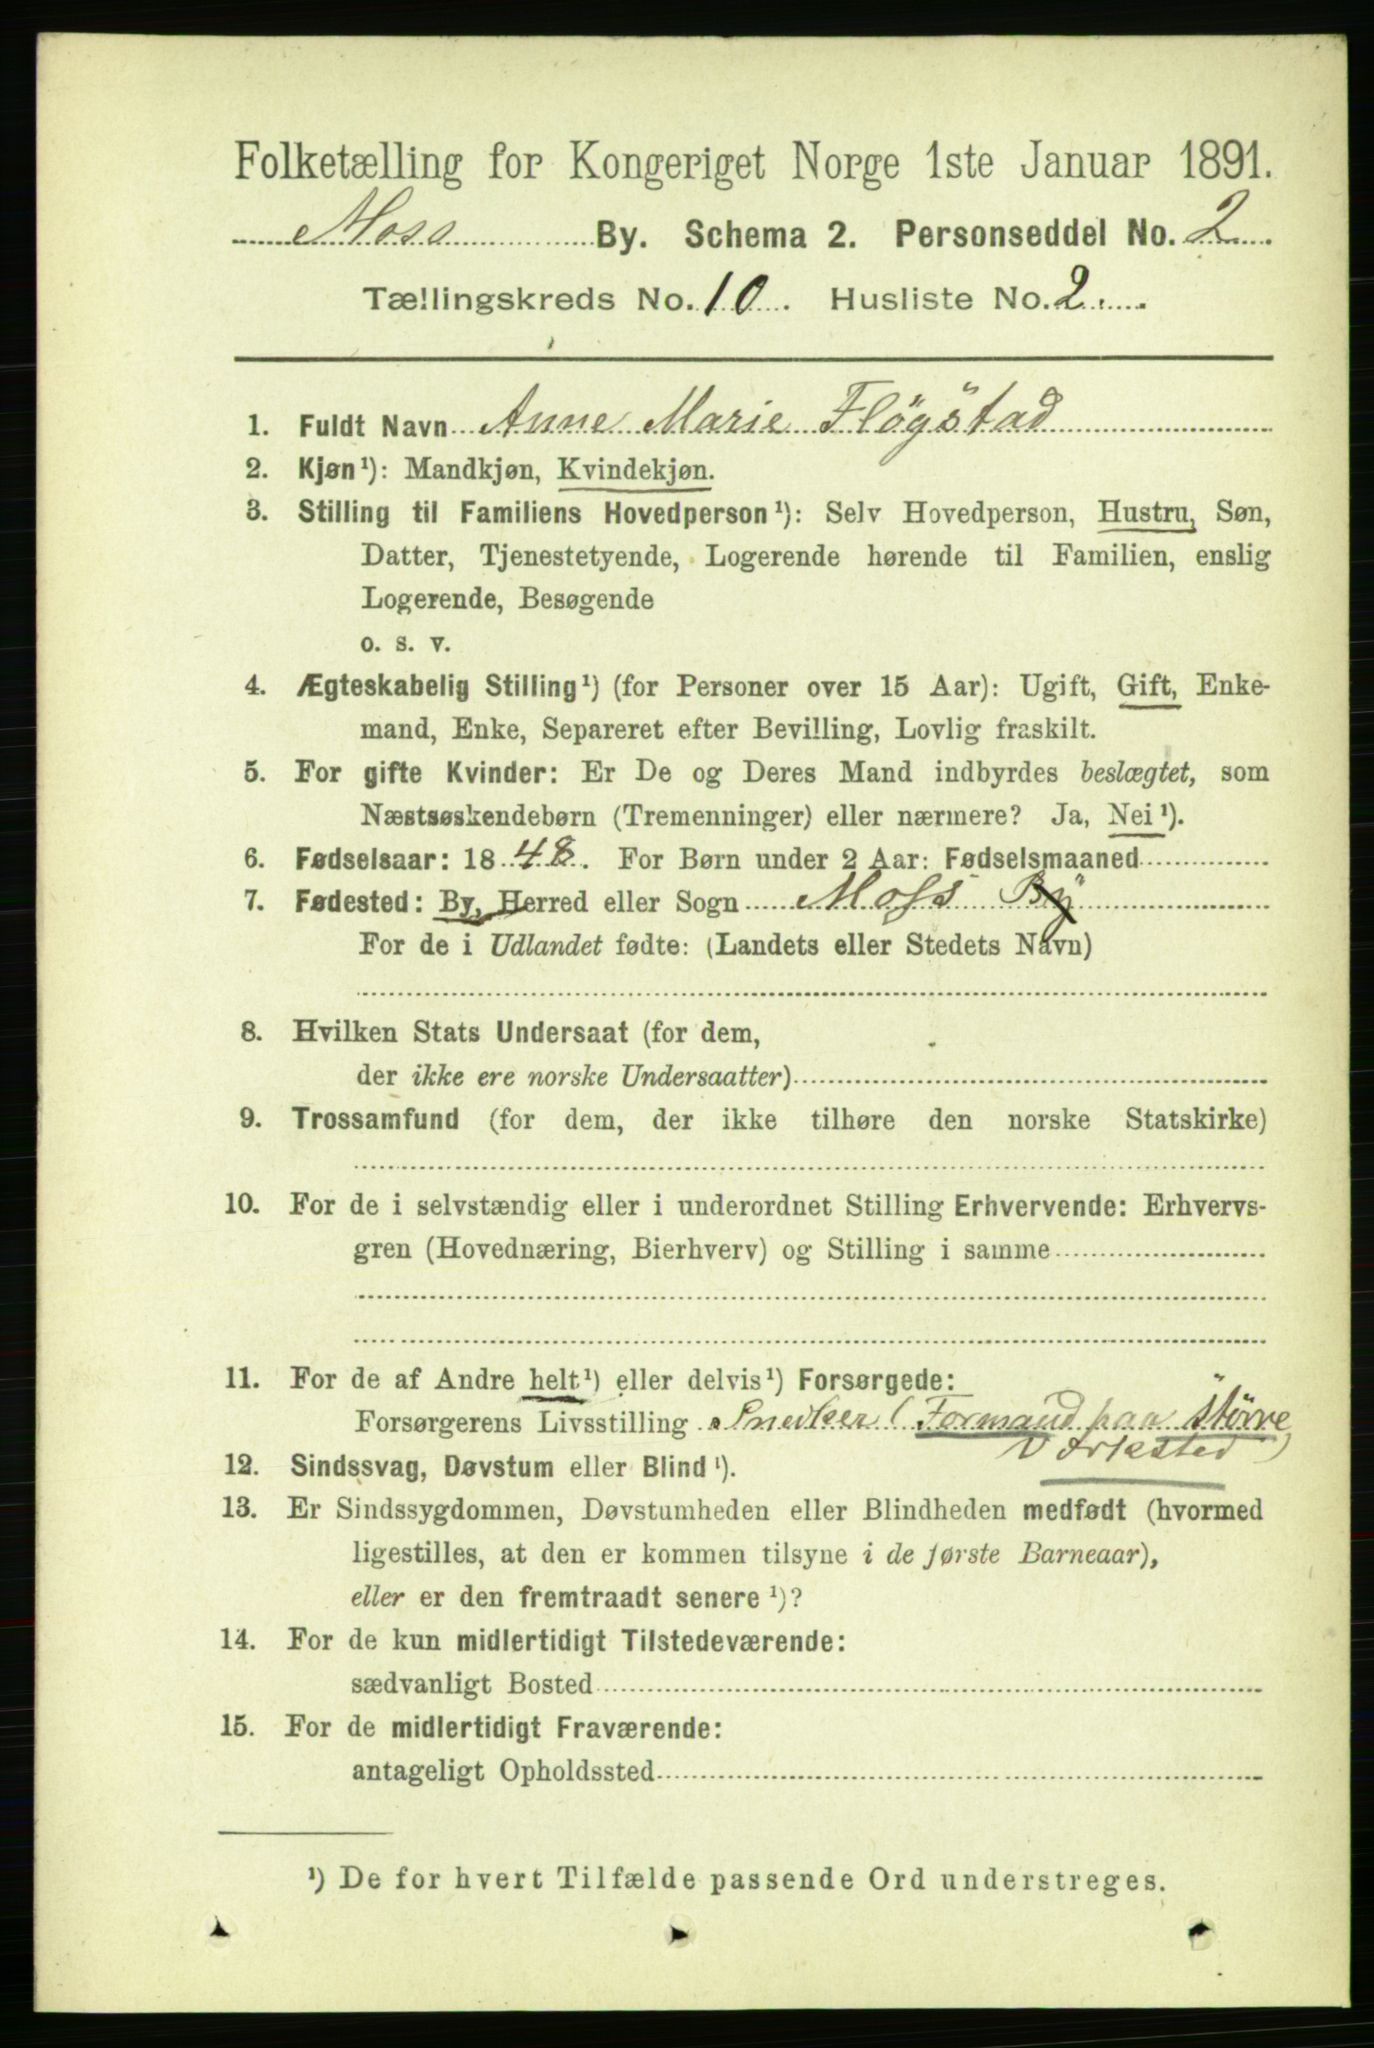 Folketælling for Kongeriget Norge 1ste Januar 1891.
Moss By. Schema 2. Personseddel No. 2
Tællingskreds No. 10. Husliste No. 2.
1. Fuldt Navn Anne Marie Flögstad
2. Kjøn¹): Mandkjøn, Kvindekjøn.
3. Stilling til Familiens Hovedperson¹): Selv Hovedperson, Hustru, Søn,
Datter, Tjenestetyende, Logerende hørende til Familien, enslig
Logerende, Besøgende
o. s. v.
4. Ægteskabelig Stilling¹) (for Personer over 15 Aar): Ugift, Gift, Enke-
mand, Enke, Separeret efter Bevilling, Lovlig fraskilt.
5. For gifte Kvinder: Er De og Deres Mand indbyrdes beslægtet, som
Næstsøskendebørn (Tremenninger) eller nærmere? Ja, Nei¹).
6. Fødselsaar: 1848. For Børn under 2 Aar: Fødselsmaaned
7. Fødested: By, Herred eller Sogn Moss By
For de i Udlandet fødte: (Landets eller Stedets Navn)
8. Hvilken Stats Undersaat (for dem,
der ikke ere norske Undersaatter)
9. Trossamfund (for dem, der ikke tilhøre den norske Statskirke)
10. For de i selvstændig eller i underordnet Stilling Erhvervende: Erhvervs-
gren (Hovednæring, Bierhverv) og Stilling i samme
11. For de af Andre helt¹) eller delvis¹) Forsørgede:
Forsørgerens Livsstilling Snedker (Formand paa större
Verksted)
12. Sindssvag, Døvstum eller Blind¹).
13. Er Sindssygdommen, Døvstumheden eller Blindheden medfødt (hvormed
ligestilles, at den er kommen tilsyne i de første Barneaar),
eller er den fremtraadt senere¹)?
14. For de kun midlertidigt Tilstedeværende:
sædvanligt Bosted
15. For de midlertidigt Fraværende:
antageligt Opholdssted
¹) De for hvert Tilfælde passende Ord understreges.